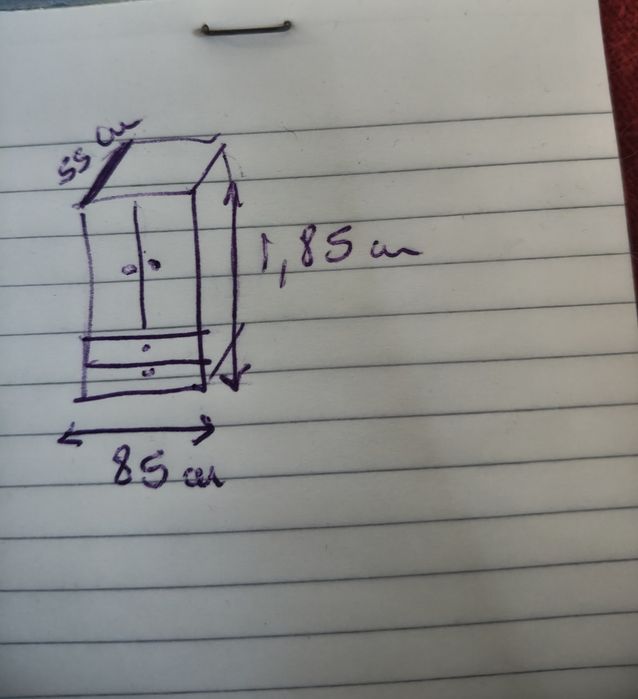 55 cm
1,85 cm
85 cm